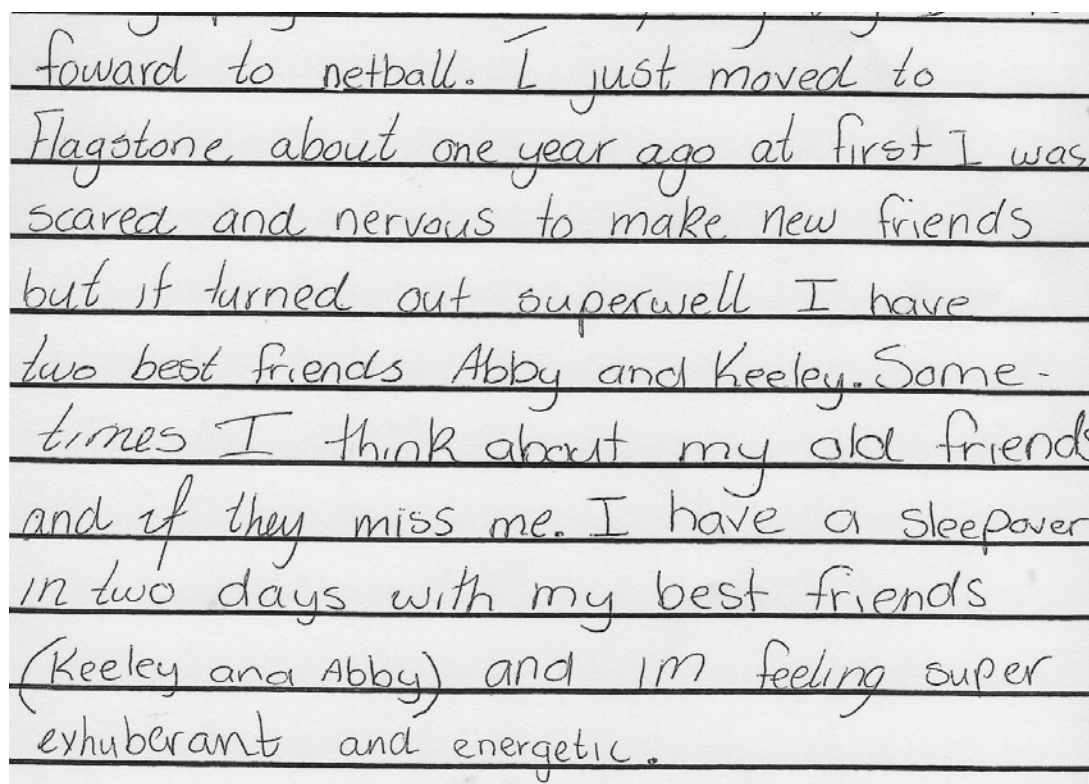 foward to netball. I just moved to
Flagstone about one year ago at first I was
scared and nervous to make new friends
but it turned out superwell I have
two best friends Abby and Keeley. Some-
times I think about my old friends
and if they miss me. I have a sleepover
in two days with my best friends
(Keeley and Abby) and im feeling super
exhuberant and energetic.